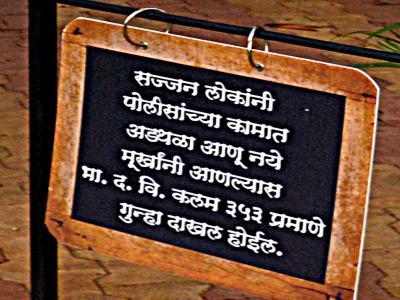 सज्जन लोकांनी
पोलीसांच्या कामात
अडथळा आणू नये
मूर्खांनी आणल्यास
भा. द. वि. कलम ३५३ प्रमाणे
गुन्हा दाखल होईल.